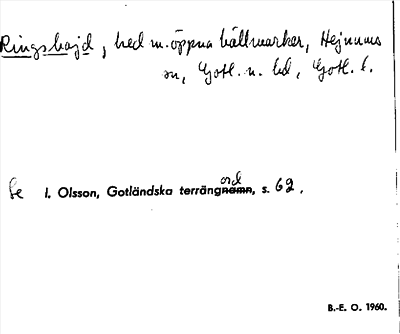 Ringshajd, hed m. öppna hällmarker, Hejnums
sn, Gotl. n. hd, Gotl. l.
Se I. Olsson, Gotländska terrängnamn ord, s. 62.
B.-E. O. 1960.